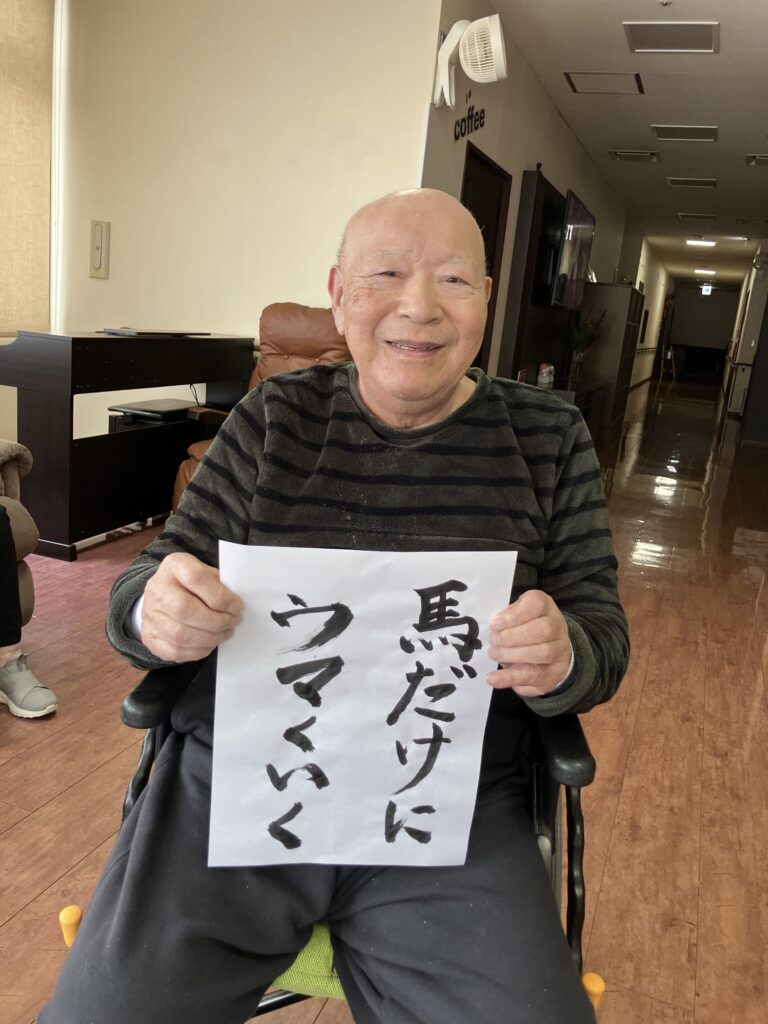 coffee
馬だけに
ウマくいく